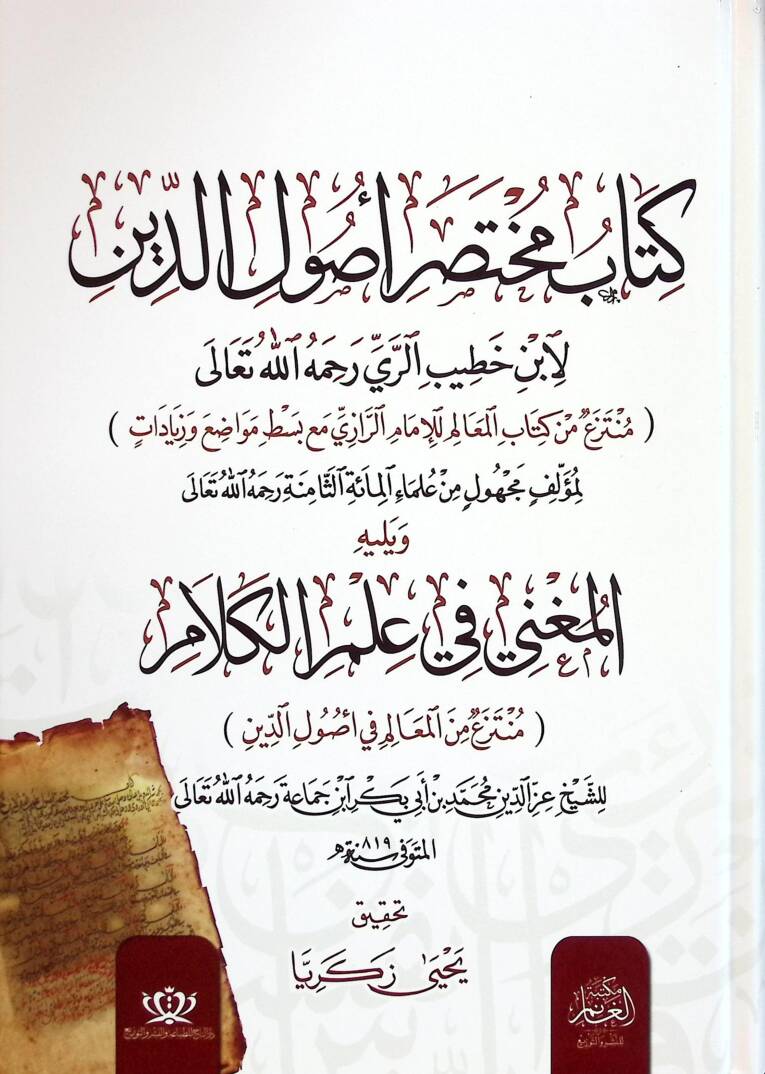 كِتَابُ مُخْتَصَرِ أُصُولِ الدِّينِ
لِابْنِ خَطِيبِ الرَّيِّ رَحِمَهُ اللهُ تَعَالَى
( مُنْتَزَعٌ مِنْ كِتَابِ المَعَالِمِ لِلإِمَامِ الرَّازِيِّ مَعَ بَسْطِ مَوَاضِعَ وَزِيَادَاتٍ )
لِمُؤَلِّفٍ مَجْهُولٍ مِنْ عُلَمَاءِ المِائَةِ الثَّامِنَةِ رَحِمَهُ اللهُ تَعَالَى
وَيَلِيهِ
المُغْنِي فِي عِلْمِ الكَلَامِ
( مُنْتَزَعٌ مِنَ المَعَالِمِ فِي أُصُولِ الدِّينِ )
لِلشَّيْخِ عِزِّ الدِّينِ مُحَمَّدِ بْنِ أَبِي بَكْرِ ابْنِ جَمَاعَةَ رَحِمَهُ اللهُ تَعَالَى
المتوفى سنة ٨١٩ هـ
تحقيق
يَحْيَى زَكَرِيَّا
مكتبة
الغانم
للنشر والتوزيع